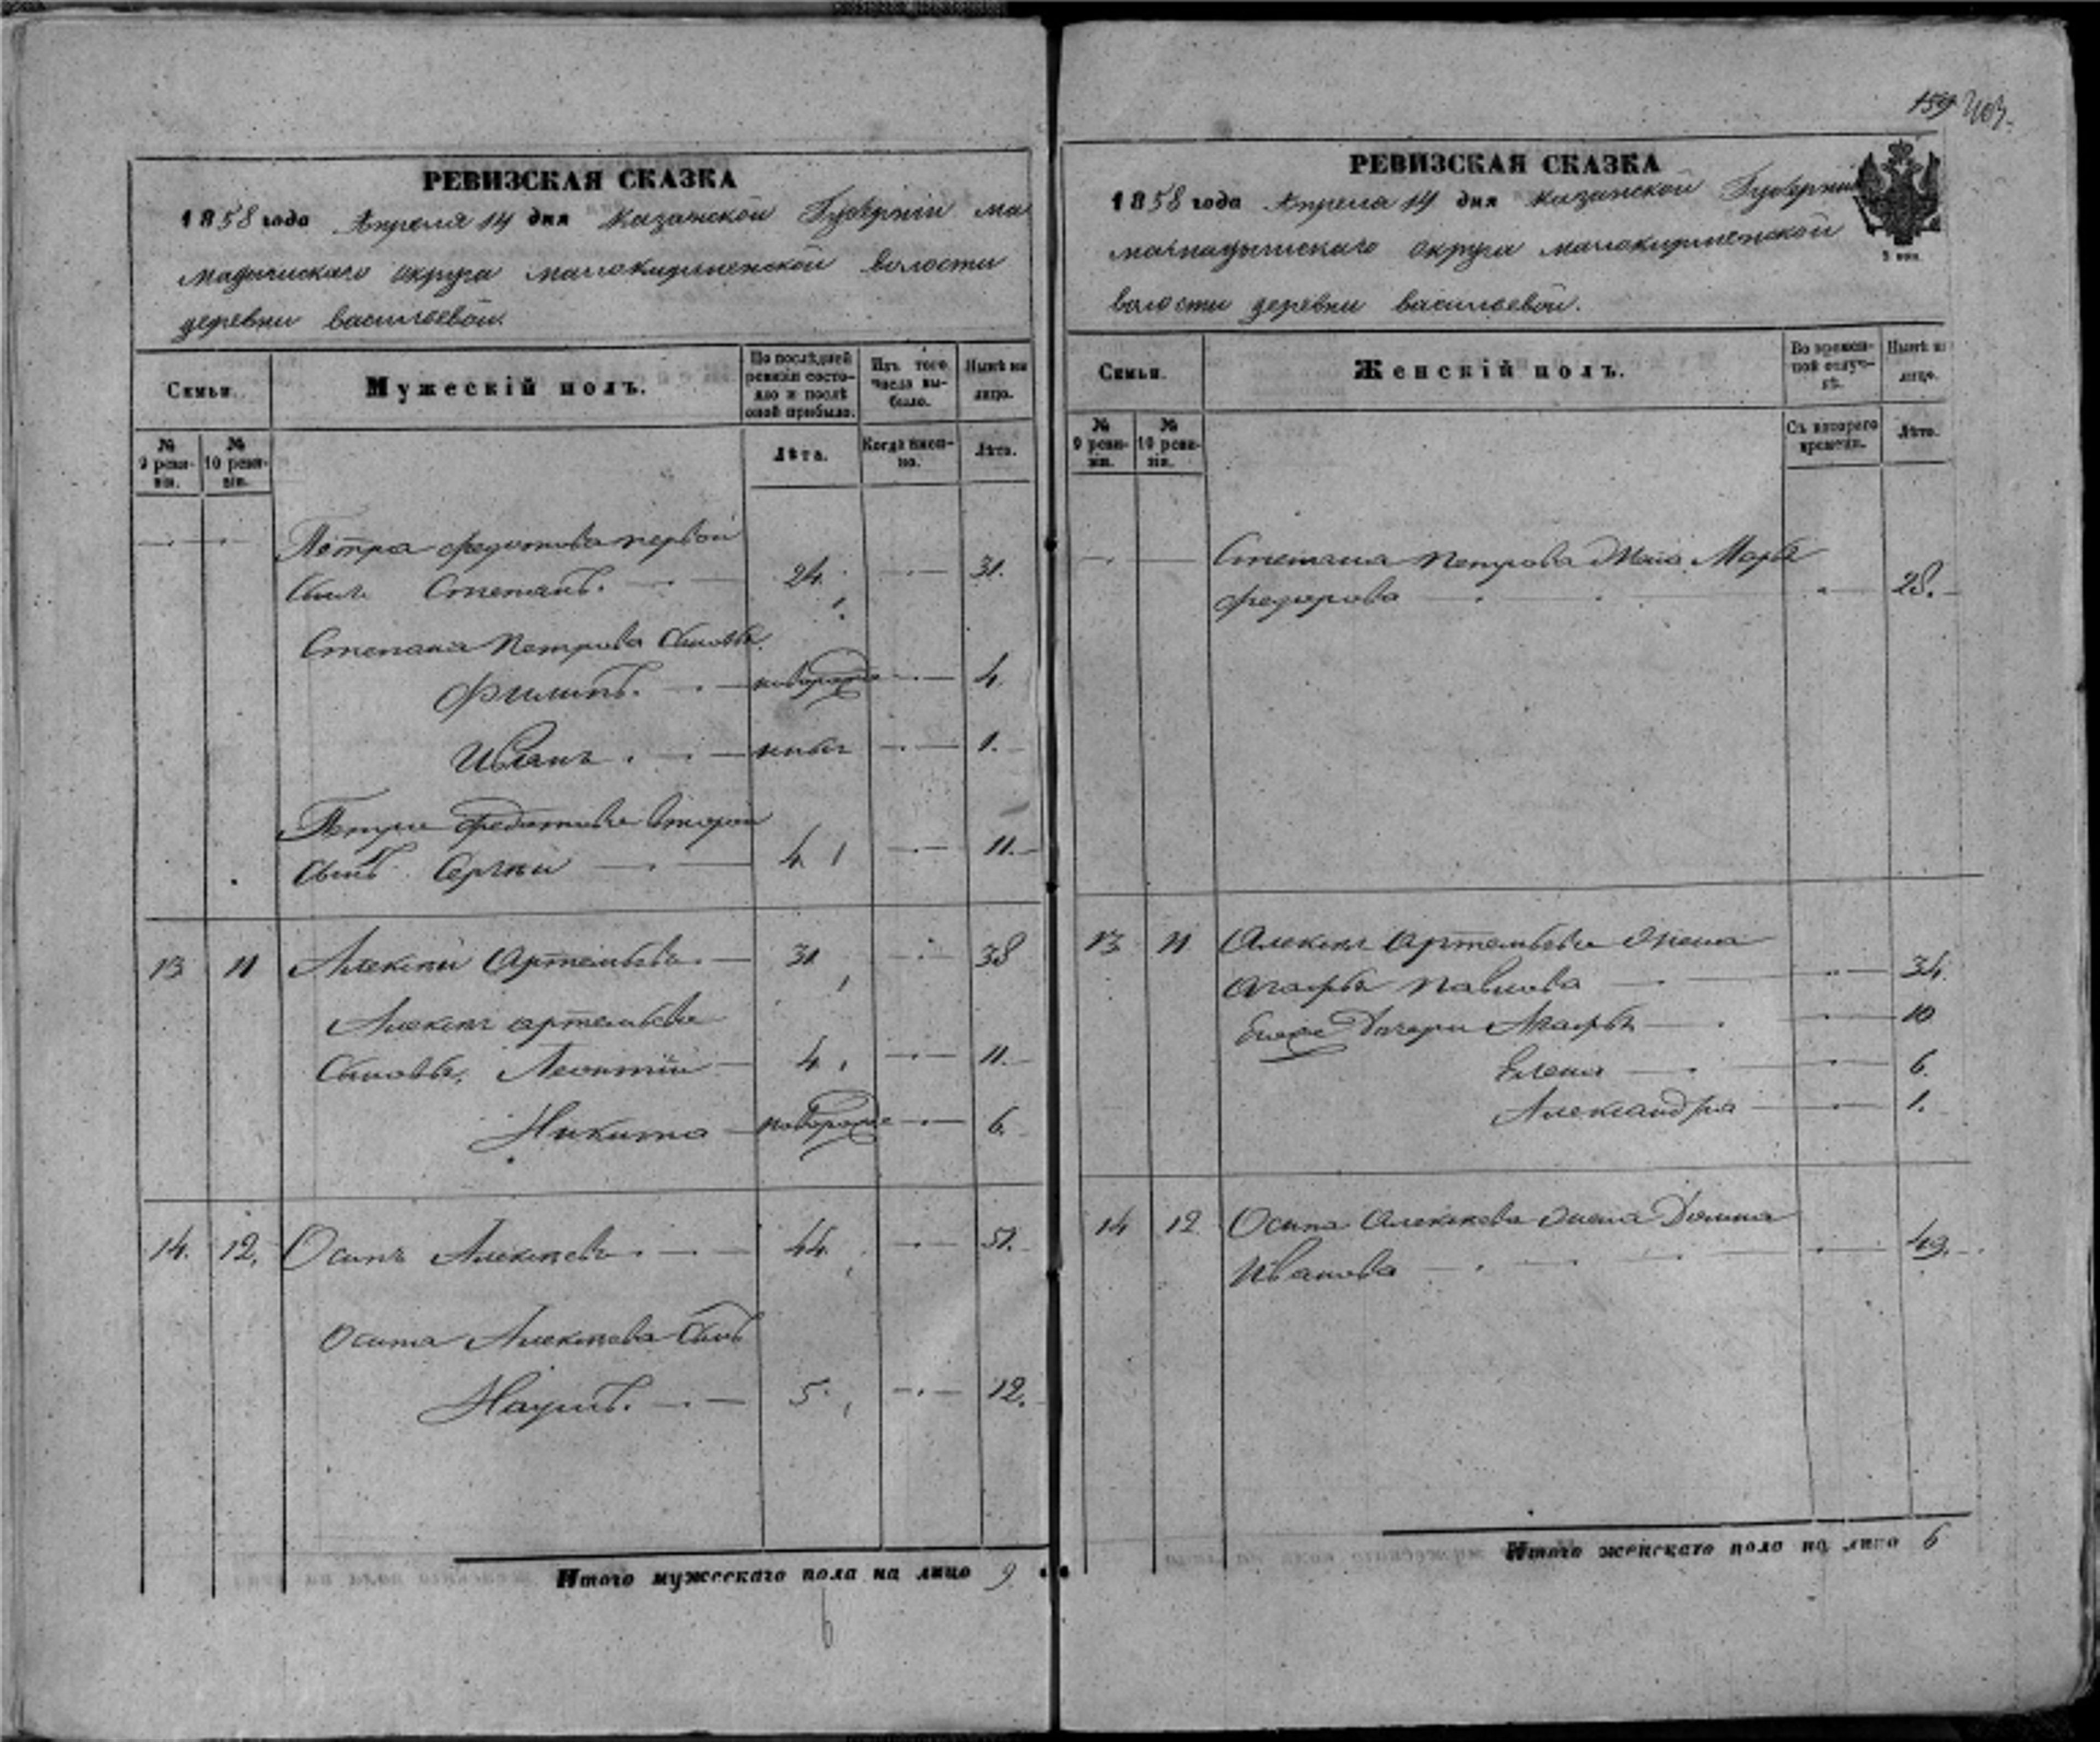 159 403.
РЕВИЗСКАЯ СКАЗКА
1858 года Апреля 14 дня Казанской Губерніи ма
мадышскаго округа малокирменской волости
деревни васильевой.
Семьи.
Мужескій полъ.
По послѣдней ревизіи состояло и послѣ оной прибыло.
Изъ того числа выбыло.
Нынѣ на лицо.
№ 9 ревизіи.
№ 10 ревизіи.
Лѣта.
Когда именно.
Лѣта.
Петра Федотова первой
сынъ Степанъ. 24. 31.
Степана Петрова сыновья.
Филипъ. новорожде 4.
Иванъ. новъ 1.
Петра Федотова второй
сынъ Сергѣй 4 11.
13 11 Алексѣй Артемьевъ 31 38
Алексѣя артемьева
сыновья, Леонтій 4 11.
Никита новорожде 6.
14. 12. Осипъ Алексѣевъ 44. 51.
Осипа Алексѣева сынъ
Наумъ. 5. 12.
Итого мужескаго пола на лицо 9
6
РЕВИЗСКАЯ СКАЗКА
1858 года Апреля 14 дня Казанской Губерніи
мамадышскаго округа малокирменской
волости деревни васильевой.
Семьи.
Женскій полъ.
Во временной отлучкѣ.
Нынѣ на лицо.
№ 9 ревизіи.
№ 10 ревизіи.
Съ котораго времени.
Лѣта.
Степана Петрова жена Марья
Федорова 28.
13 11 Алексѣя Артемьева жена
Агафья Павлова 34.
Дочери Агафья 10
Елена 6.
Александра 1.
14 12 Осипа Алексѣева жена Домна
Иванова 49.
Итого женскаго пола на лицо 6